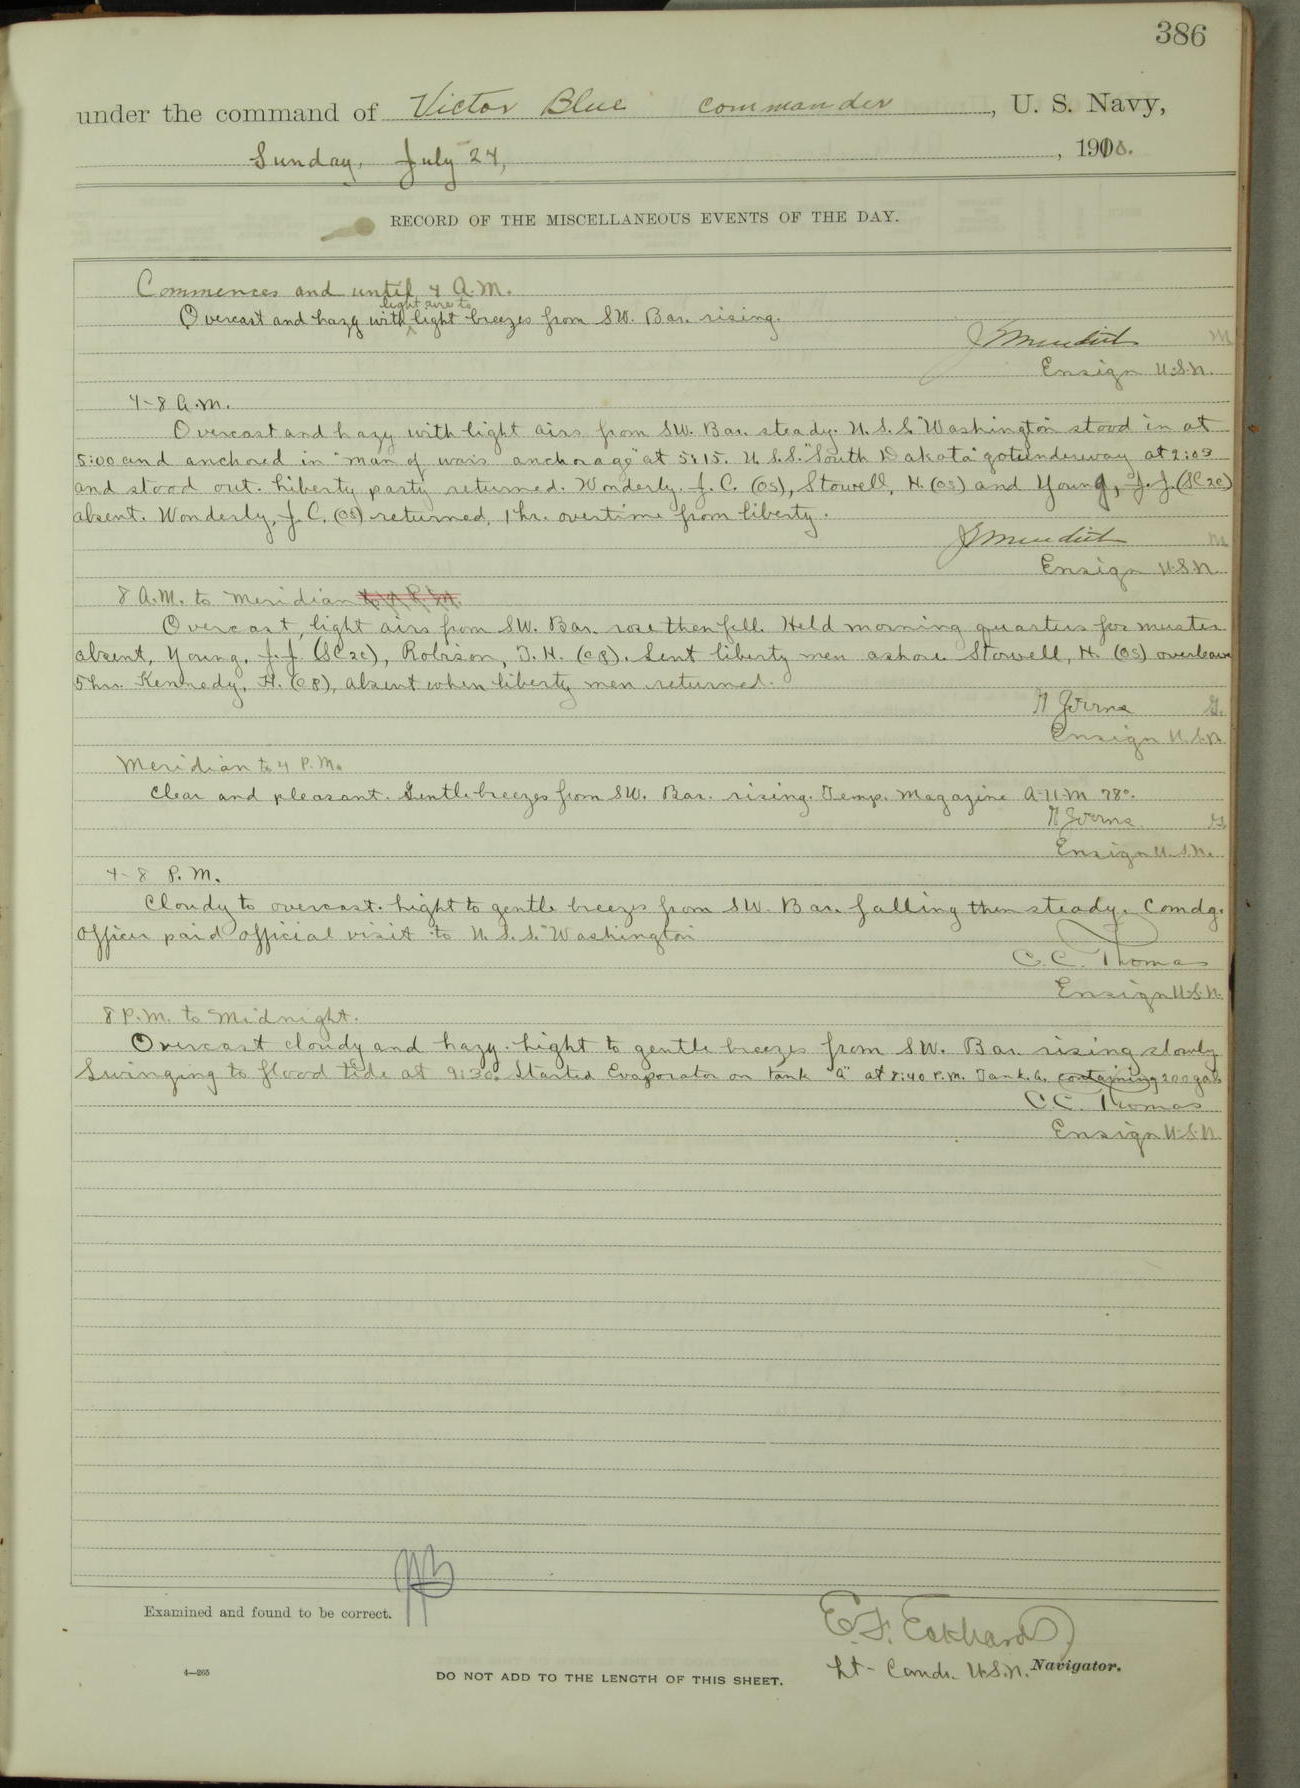 386
under the command of Victor Blue commander, U. S. Navy,
Sunday, July 24, , 1910.
RECORD OF THE MISCELLANEOUS EVENTS OF THE DAY.
Commences and until 4 A.M.
light airs to
Overcast and hazy with light breezes from SW. Bar. rising.
J Meredith
Ensign U.S.N.
4-8 A.M.
Overcast and hazy with light airs from SW. Bar. steady. U.S.S. "Washington" stood in at
5:00 and anchored in "man of war's anchorage" at 5:15. U.S.S. "South Dakota" got underway at
and stood out. Liberty party returned. Wonderly, J. C. (OS), Stowell, H. (OS) and Young, J. J. (SC2C)
absent. Wonderly, J. C. (OS) returned, 1 hr. overtime from liberty.
J Meredith
Ensign U.S.N.
8 A.M. to Meridian
Overcast, light airs from SW. Bar. rose then fell. Held morning quarters for muster
absent, Young, J. J. (SC2C), Robison, T. H. (CP). Sent liberty men ashore. Stowell, H. (OS) overleave
5 hrs. Kennedy, H. (CP), absent when liberty men returned.
Ensign U.S.N.
Meridian to 4 P.M.
Clear and pleasant. Gentle breezes from SW. Bar. rising. Temp. Magazine A-U-M 78°.
Ensign U.S.N.
4-8 P.M.
Cloudy to overcast. Light to gentle breezes from SW. Bar. falling then steady. Comdg.
Officer paid official visit to U.S.S. "Washington"
C. C. Thomas
Ensign U.S.N.
8 P.M. to Midnight.
Overcast cloudy and hazy. Light to gentle breezes from SW. Bar. rising slowly
Swinging to flood tide at 9:30. Started Evaporator on tank "a" at 8:40 P.M. Tank a. containing 200 gals
C. C. Thomas
Ensign U.S.N.
Examined and found to be correct.
E. F. Eckhardt,
Lt-Comdr. U.S.N. Navigator.
4—265
DO NOT ADD TO THE LENGTH OF THIS SHEET.